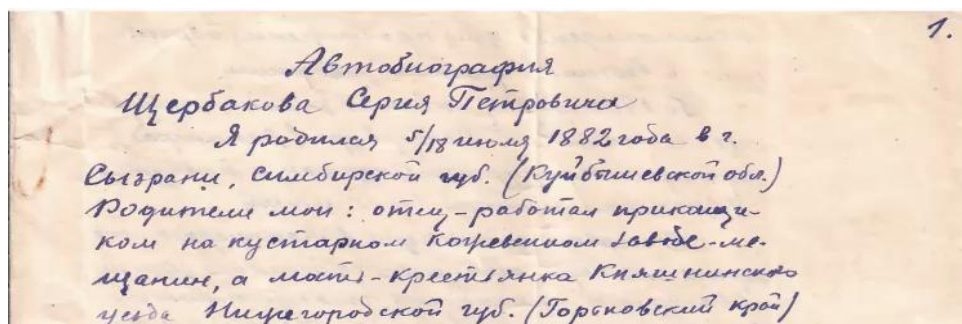 1.
Автобиография
Щербакова Сергея Петровича
Я родился 5/18 июля 1882 года в г.
Сызрани, Симбирской губ. (Куйбышевской обл.)
Родители мои: отец - работал приказчи-
ком на кустарном кожевенном заводе - ме-
щанин, а мать - крестьянка Княгининского
уезда Нижегородской губ. (Горьковский край)